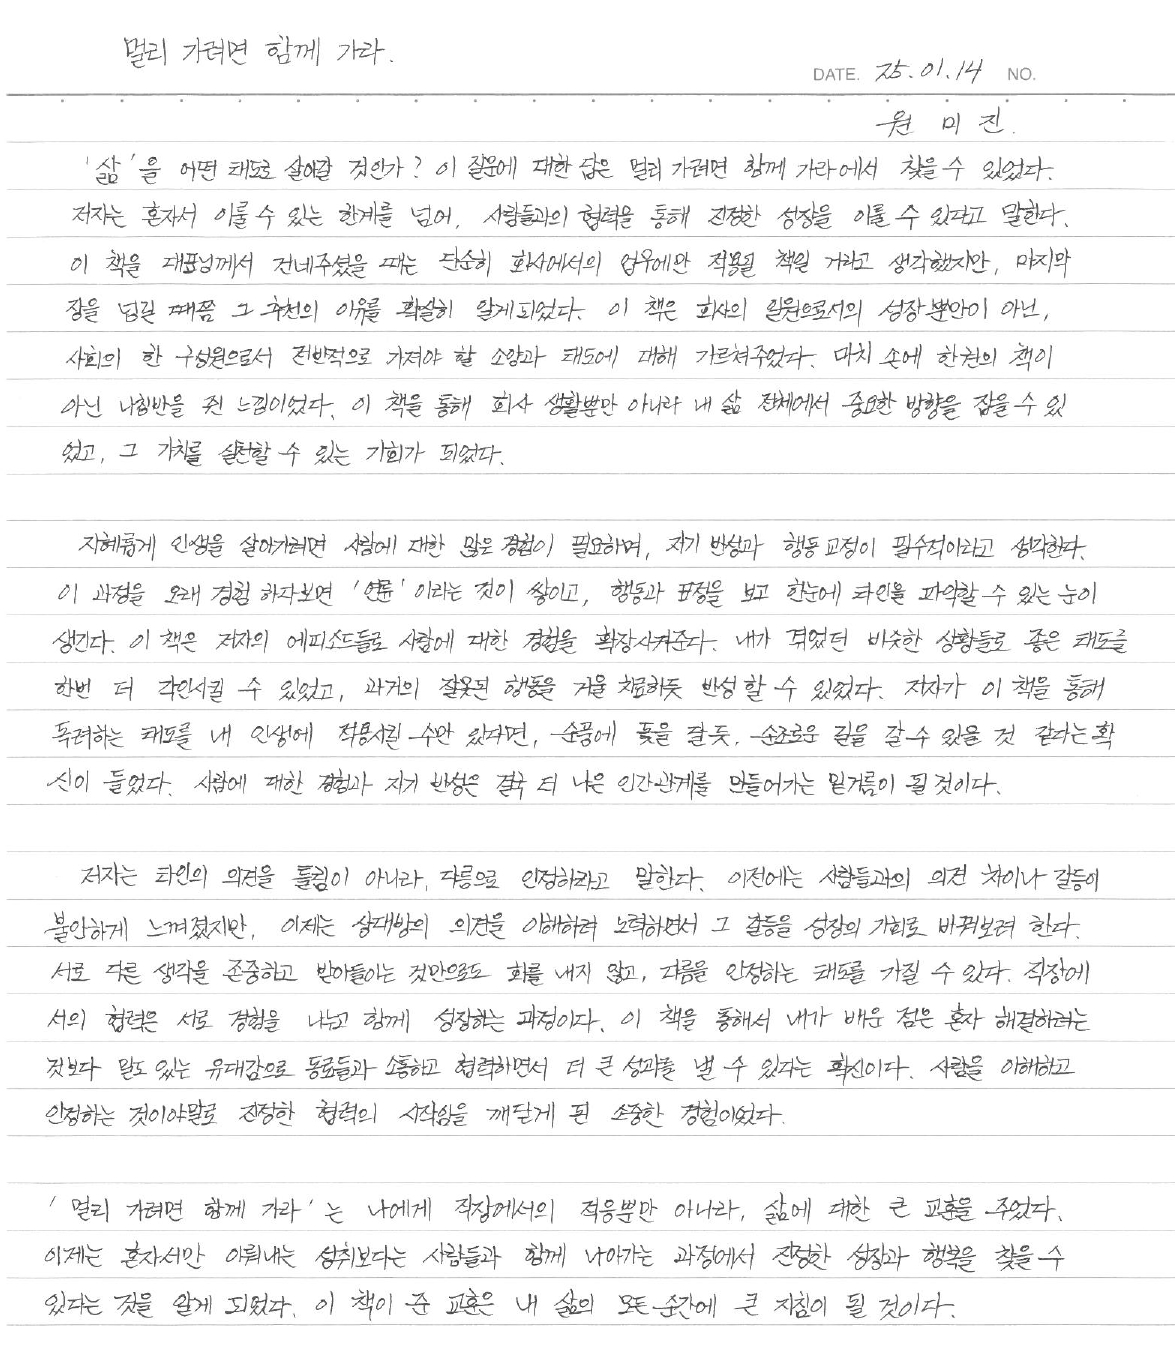 멀리 가려면 함께 가라.
DATE. 25.01.14 NO.
원 미 진.
'삶'을 어떤 태도로 살아갈 것인가? 이 질문에 대한 답은 멀리 가려면 함께 가라에서 찾을 수 있었다.
저자는 혼자서 이룰 수 있는 한계를 넘어, 사람들과의 협력을 통해 진정한 성장을 이룰 수 있다고 말한다.
이 책을 대표님께서 건네주셨을 때는 단순히 회사에서의 업무에만 적용될 책일 거라고 생각했지만, 마지막
장을 넘길 때쯤 그 추천의 이유를 확실히 알게되었다. 이 책은 회사의 일원으로서의 성장뿐만이 아닌,
사회의 한 구성원으로서 전반적으로 가져야 할 소양과 태도에 대해 가르쳐주었다. 마치 손에 한권의 책이
아닌 나침반을 쥔 느낌이었다. 이 책을 통해 회사 생활뿐만 아니라 내 삶 전체에서 중요한 방향을 잡을 수 있
었고, 그 가치를 실천할 수 있는 기회가 되었다.
지혜롭게 인생을 살아가려면 사람에 대한 많은 경험이 필요하며, 자기 반성과 행동 교정이 필수적이라고 생각한다.
이 과정을 오래 경험 하다보면 '연륜'이라는 것이 쌓이고, 행동과 표정을 보고 한눈에 타인을 파악할 수 있는 눈이
생긴다. 이 책은 저자의 에피소드들로 사람에 대한 경험을 확장시켜준다. 내가 겪었던 비슷한 상황들로 좋은 태도를
한번 더 각인시킬 수 있었고, 과거의 잘못된 행동을 거울 치료하듯 반성 할 수 있었다. 저자가 이 책을 통해
독려하는 태도를 내 인생에 적용시킬 수만 있다면, 순풍에 돛을 달듯, 순조로운 길을 갈 수 있을 것 같다는 확
신이 들었다. 사람에 대한 경험과 자기 반성은 결국 더 나은 인간관계를 만들어가는 밑거름이 될 것이다.
저자는 타인의 의견을 틀림이 아니라, 다름으로 인정하라고 말한다. 이전에는 사람들과의 의견 차이나 갈등이
불안하게 느껴졌지만, 이제는 상대방의 의견을 이해하려 노력하면서 그 갈등을 성장의 기회로 바꿔보려 한다.
서로 다른 생각을 존중하고 받아들이는 것만으로도 화를 내지 않고, 다름을 인정하는 태도를 가질 수 있다. 직장에
서의 협력은 서로 경험을 나누고 함께 성장하는 과정이다. 이 책을 통해서 내가 배운 점은 혼자 해결하려는
것보다 밀도 있는 유대감으로 동료들과 소통하고 협력하면서 더 큰 성과를 낼 수 있다는 확신이다. 사람을 이해하고
인정하는 것이야말로 진정한 협력의 시작임을 깨닫게 된 소중한 경험이었다.
'멀리 가려면 함께 가라'는 나에게 직장에서의 적응뿐만 아니라, 삶에 대한 큰 교훈을 주었다.
이제는 혼자서만 이뤄내는 성취보다는 사람들과 함께 나아가는 과정에서 진정한 성장과 행복을 찾을 수
있다는 것을 알게 되었다. 이 책이 준 교훈은 내 삶의 모든 순간에 큰 지침이 될 것이다.